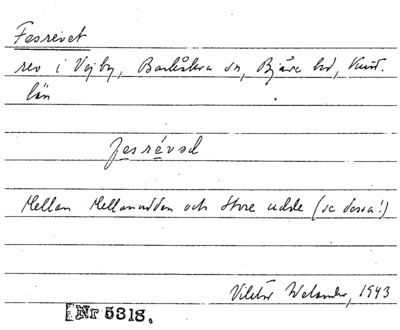 Fesrevet
rev i Vejby, Barkåkra sn, Bjäre hd, Krist.
län
fesrévəd
Mellan Mellanudden och Store udde (se dessa!)
Viktor Welander, 1943
Nr 5318.